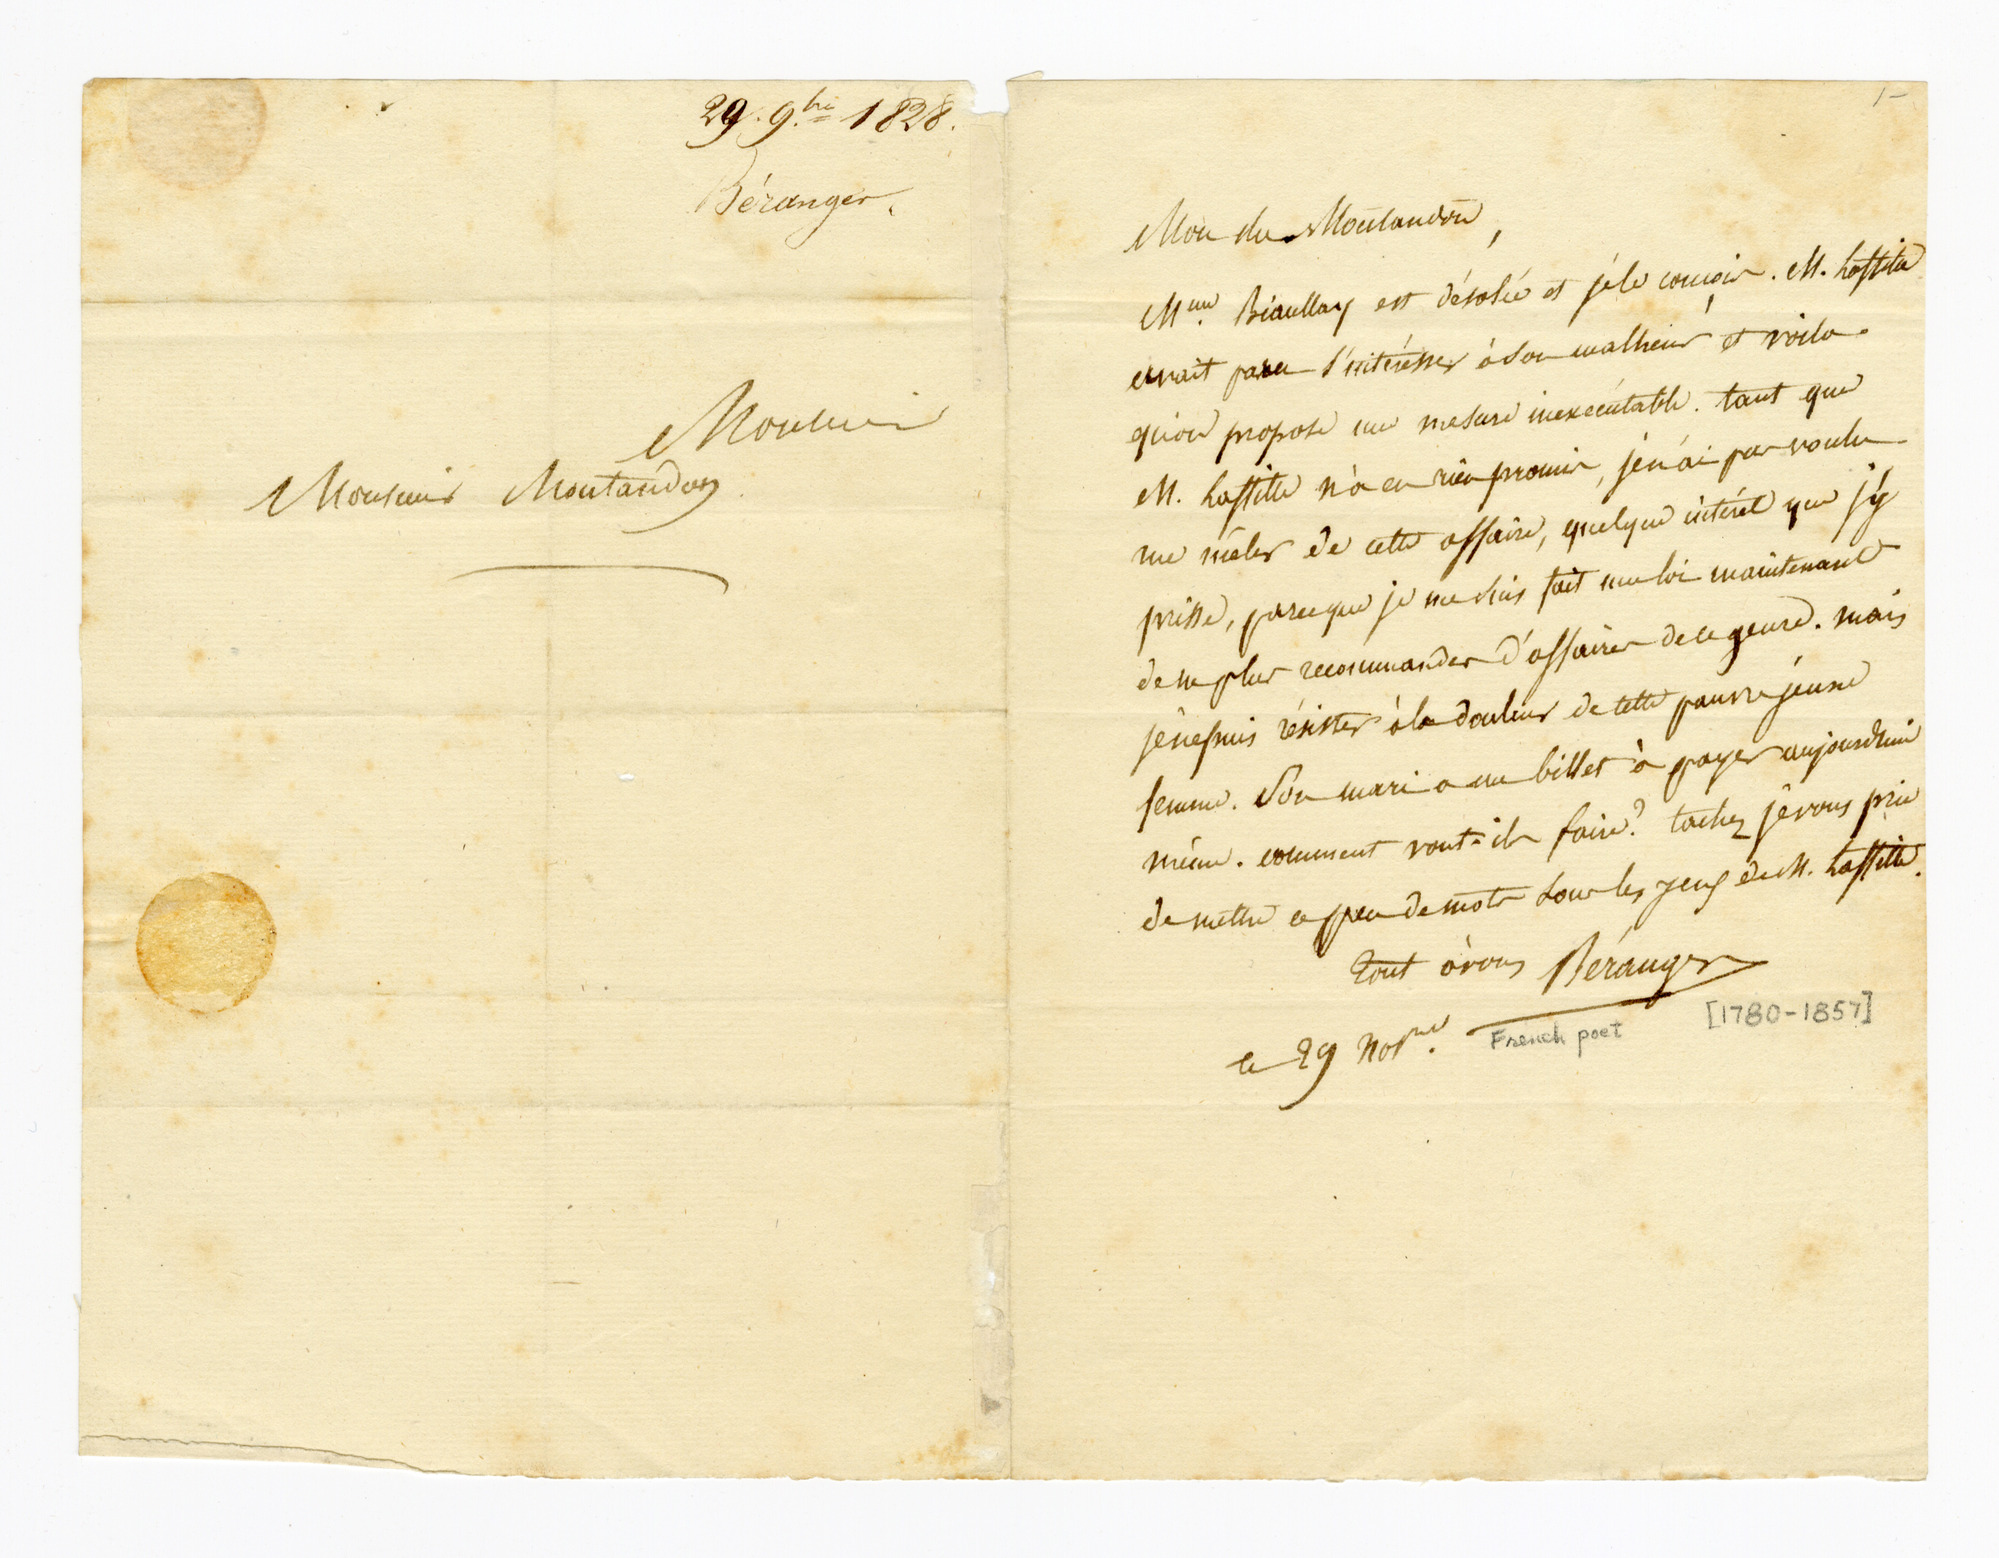 29. 9.bre 1828.
Béranger.
Monsieur
Monsieur Montandon
1-
Mon cher Montandon,
Mme. est désolée et je le conçois. M. Laffitte
avait paru s'intéresser à son malheur et voila
qu'on propose une mesure inexécutable. tant que
M. Laffitte n'a eu rien promis, je n'ai pas voulu
me mêler de cette affaire, quelque intérêt que j'y
prisse, parceque je me suis fait une loi maintenant
de ne plus recommander d'affaires de ce genre. mais
je ne puis résister à la douleur de cette pauvre jeune
femme. Son mari a un billet à payer aujourd'hui
même. comment vont-ils faire? tachez je vous prie
de mettre ce peu de mots sous les yeux de M. Laffitte.
Tout à vous Béranger
[1780-1857]
French poet
ce 29 Novre.